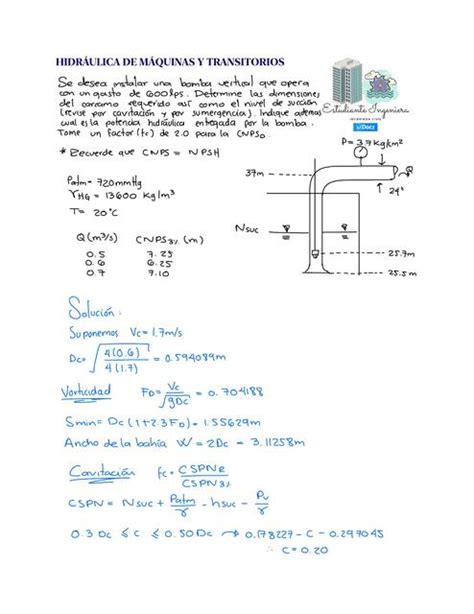 HIDRÁULICA DE MÁQUINAS Y TRANSITORIOS
Se desea instalar una bomba vertical que opera
con un gasto de 600 lps. Determine las dimensiones
del carcamo requerido así como el nivel de succión
(revise por cavitación y por sumergencia). Indique además
cual es la potencia hidráulica entregada por la bomba.
Tome un factor (fc) de 2.0 para la CNPSD.
Estudiante Ingeniera
* Recuerde que CNPS = NPSH
P = 3.7 kg/cm²
37m
24"
Patm = 720mmHg
γHG = 13600 kg/m³
T = 20°C
Nsuc
Q (m³/s) CNPS3% (m)
0.5 7.25
0.6 6.25
0.7 7.10
25.7m
25.5m
Solución:
Suponemos Vc = 1.7m/s
Dc = √4(0.6)/4(1.7) = 0.594089m
Vorticidad FD = Vc/√gDc = 0.704188
Smin = Dc (1+2.3FD) = 1.55629m
Ancho de la bahía W = 2Dc = 3.11258m
Cavitación fc = CSPNR/CSPN3%
CSPN = Nsuc + Patm/γ - hsuc - Pv/γ
0.3 Dc ≤ C ≤ 0.50 Dc → 0.178227 - C - 0.297045
∴ C = 0.20